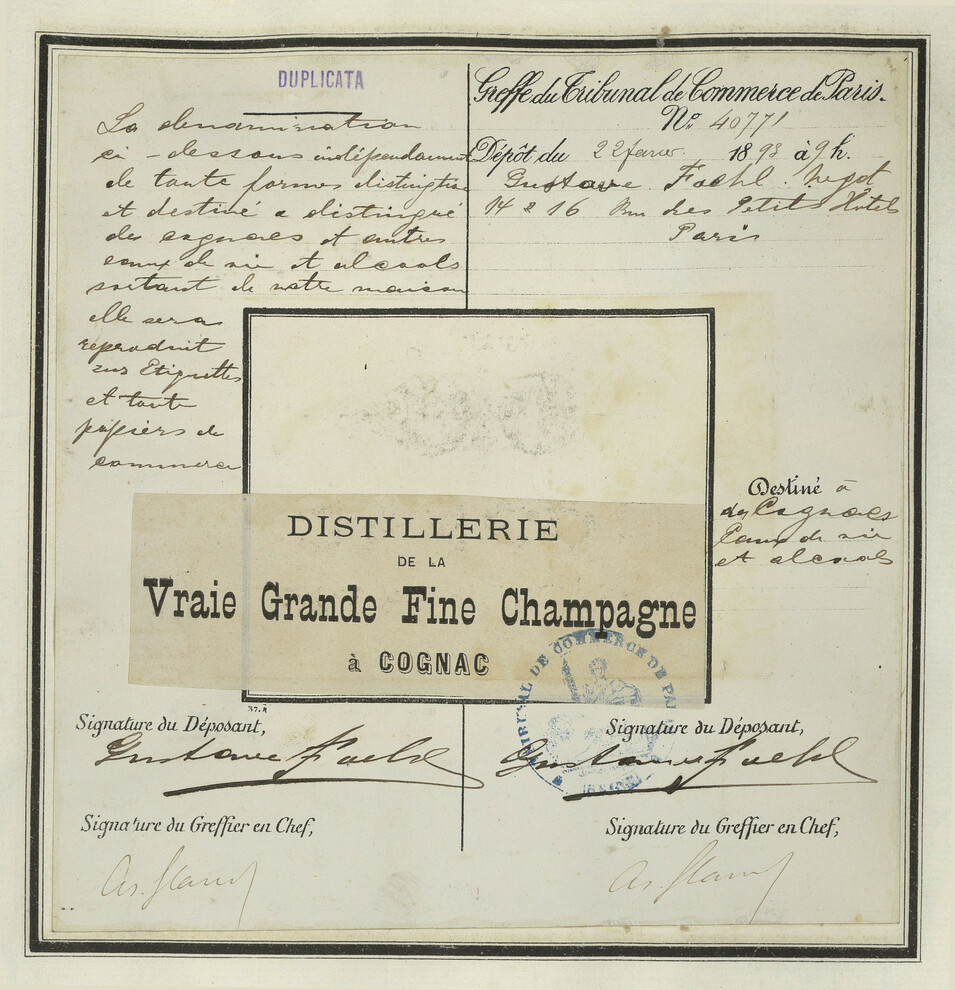 DUPLICATA
La denomination
ci-dessous indépendament
de toute formes distingtive
et destiné a distingué
des cognacs et autres
eaux de vie et alcools
sortant de notre maison
elle sera
reproduit
sur Etiquettes
et toute
papiers de
commerce
Greffe du Tribunal de Commerce de Paris.
No. 40771
Dépôt du 22 1893 à 9 h.
Gustave Foehl. Negot
14 & 16 Rue des Petits Hotels
Paris
DISTILLERIE
DE LA
Vraie Grande Fine Champagne
à COGNAC
Destiné à
des Cognacs
Eaux de vie
et alcools
TRIBUNAL DE COMMERCE DE PARIS
(SEINE)
37. A
Signature du Déposant,
Gustave Foehl
Signature du Greffier en Chef,
Signature du Déposant,
Gustave Foehl
Signature du Greffier en Chef,